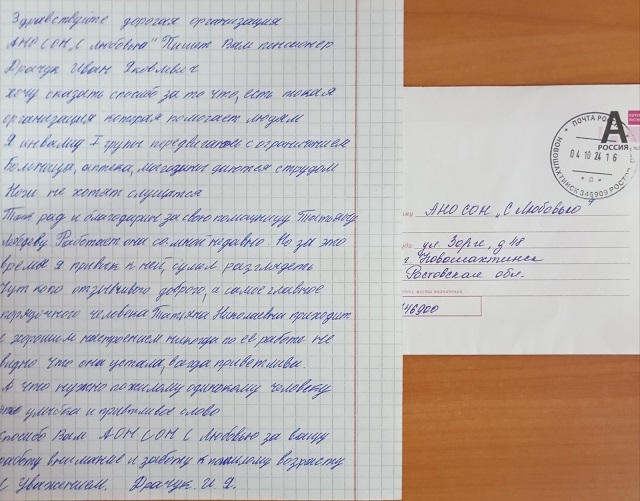 Здравствуйте дорогая организация
АНО СОН „С Любовью" Пишет Вам пенсионер
Драчук Иван Яковлевич
хочу сказать спосиб за то что, есть такая
организация которая помогает людям
Я инвалид I групы передвигаюсь с ограничением
Больница, аптека, магазины даются с трудом
Ноги не хотят слушатся
Так рад и благодарин за свою помощницу Татьяну
Лебедеву Работает она со мной недавно. Но за это
время я привык к ней, сумел разглядеть
чуткого отзывчивого доброго, а самое главное
порядочного человека Татьяна Николаевна приходит
с хорошим настроением никогда по её работе не
видно что она устала, всегда приветлива.
А что нужно пожилому одинокому человеку
это улыбка и приветливое слово
спосибо Вам АОН СОН С Любовью за вашу
работу внимание и заботу к пожилому возрасту
С Уважением. Драчук. И. Я.
ПОЧТА РОССИИ
А
РОССИЯ
04 10 24 16
НОВОШАХТИНСК 346909 РОСТОВ
АНО СОН „С Любовью"
ул. Зорге, д 48
г. Новошахтинск
Ростовская обл.
346900